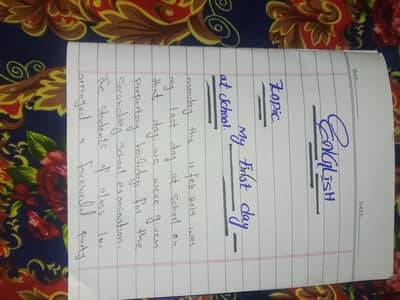 DATE:
DATE:
ENGLISH
Topic
My First day
at School.
monday the 11 feb 2019 was
my last day at School on
that day we were given
preparatory holidays for the
Secondary School examination.
The students of class Ix.
arranged a farewell party